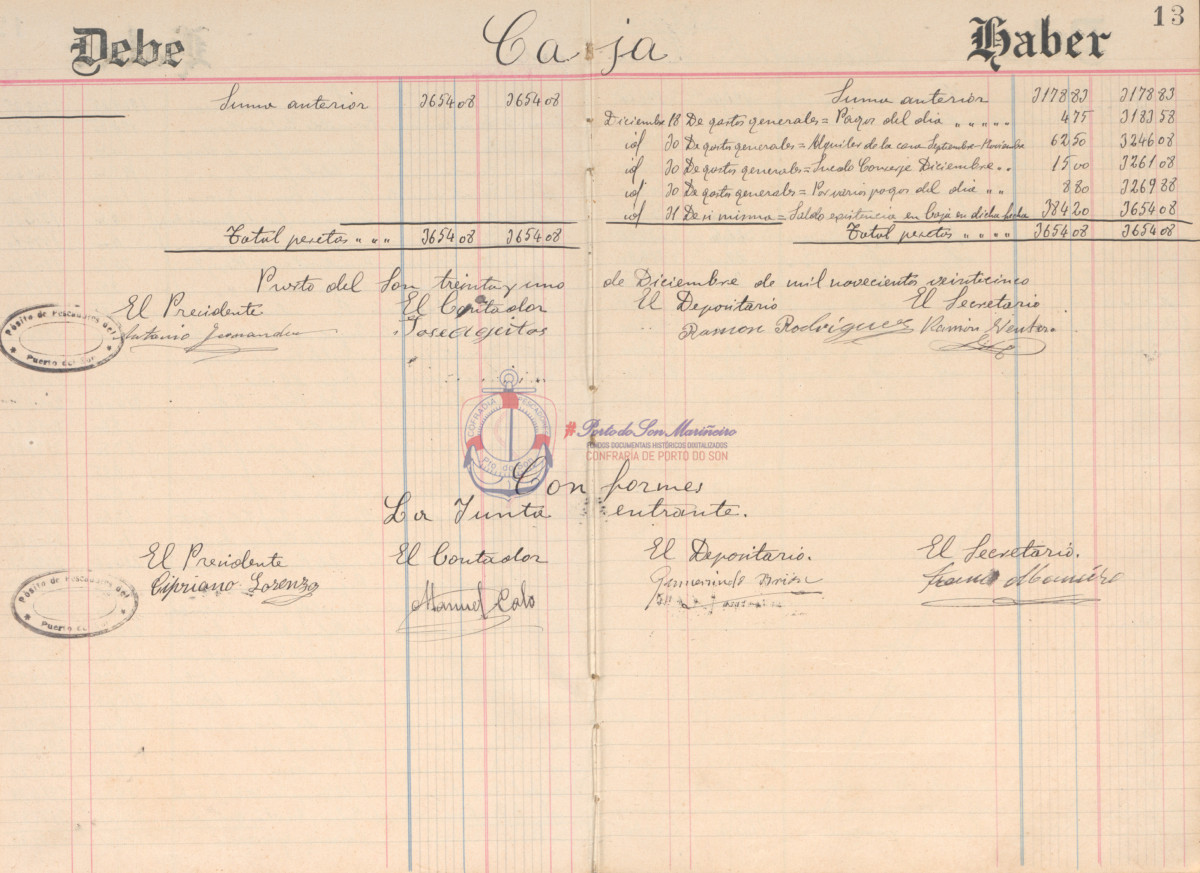 13
Debe Caja Haber
Suma anterior 3654 08 3654 08
Total pesetas " " " 3654 08 3654 08
Suma anterior 3178 83 3178 83
Diciembre 18 De gastos generales = Pagos del dia " " " " " 4 75 3183 58
id 30 De gastos generales = Alquiler de la casa Septiembre-Noviembre 62 50 3246 08
id 30 De gastos generales = Sueldo Conserje Diciembre " " 15 00 3261 08
id 30 De gastos generales = Por varios pagos del dia " " 8 80 3269 88
id 31 De si misma = Saldo existencia en Caja en dicha fecha 384 20 3654 08
Total pesetas " " " " 3654 08 3654 08
Puerto del Son treinta y uno de Diciembre de mil novecientos veinticinco
El Precidente El Contador El Depositario El Secretario
Antonio Fernandez Jose Ageitos Ramon Rodríguez Ramón Ventoso
Pósito de Pescadores del
Puerto del Son
COFRADIA PESCADORES
Pto. do Son
#Porto do Son Mariñeiro
FONDOS DOCUMENTAIS HISTÓRICOS DIXITALIZADOS
CONFRARÍA DE PORTO DO SON
Conformes
La Junta entrante.
El Precidente El Contador El Depositario. El Secretario.
Cipriano Lorenzo Manuel Calo
Pósito de Pescadores del
Puerto del